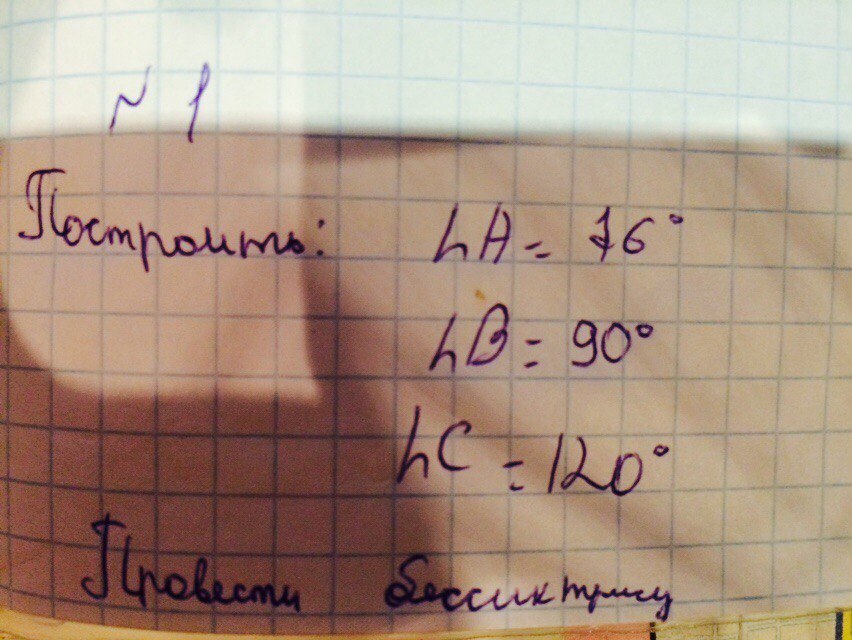 N 1
Построить: ∠A = 76°
∠B = 90°
∠C = 120°
Провести бессиктрису